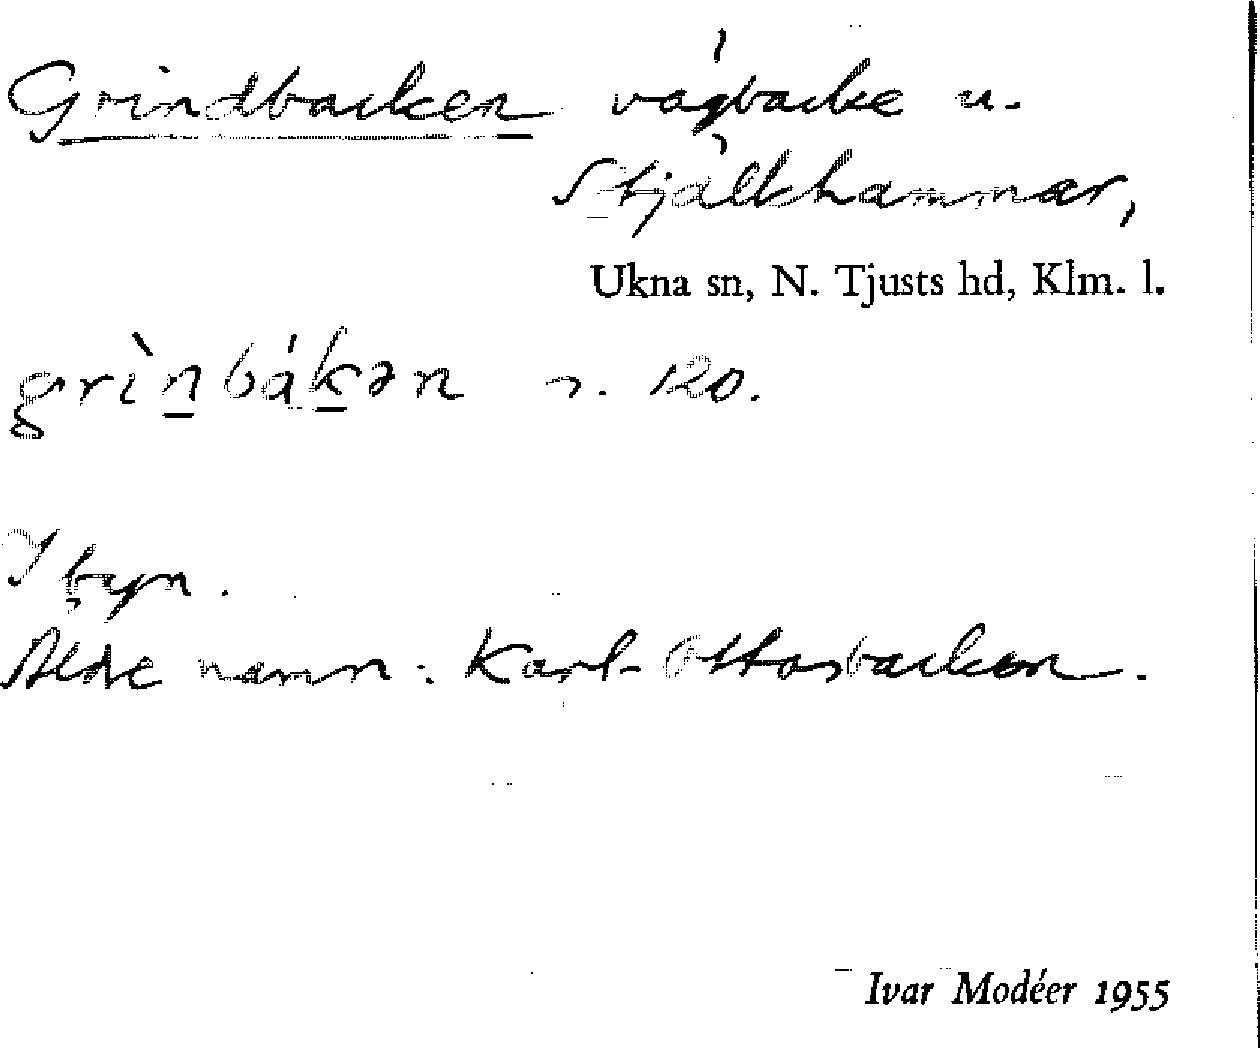 Grindbacken vägbacke u.
Stjälkhammar,
Ukna sn, N. Tjusts hd, Klm. l.
grìnbákən n. 120.
I byn.
Äldre namn: Karl-Ottosbacken.
Ivar Modéer 1955